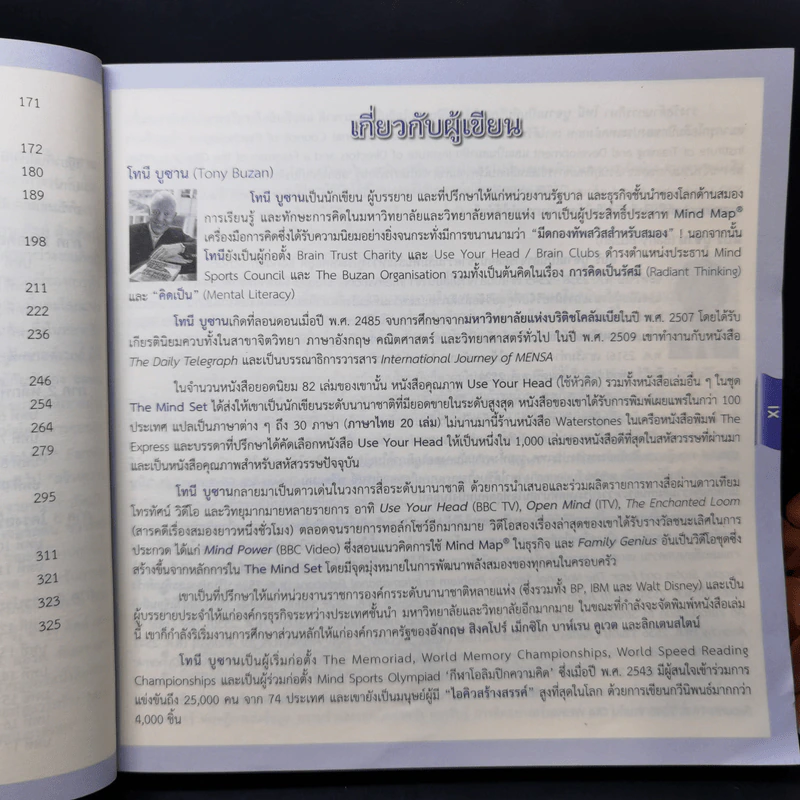 171
172
180
189
198
211
222
236
246
254
264
279
295
311
321
323
325
เกี่ยวกับผู้เขียน
โทนี บูซาน (Tony Buzan)
โทนี บูซานเป็นนักเขียน ผู้บรรยาย และที่ปรึกษาให้แก่หน่วยงานรัฐบาล และธุรกิจชั้นนำของโลกด้านสมอง
การเรียนรู้ และทักษะการคิดในมหาวิทยาลัยและวิทยาลัยหลายแห่ง เขาเป็นผู้ประสิทธิ์ประสาท Mind Map®
เครื่องมือการคิดซึ่งได้รับความนิยมอย่างยิ่งจนกระทั่งมีการขนานนามว่า "มีดกองทัพสวิสสำหรับสมอง" ! นอกจากนั้น
โทนียังเป็นผู้ก่อตั้ง Brain Trust Charity และ Use Your Head / Brain Clubs ดำรงตำแหน่งประธาน Mind
Sports Council และ The Buzan Organisation รวมทั้งเป็นต้นคิดในเรื่อง การคิดเป็นรัศมี (Radiant Thinking)
และ "คิดเป็น" (Mental Literacy)
โทนี บูซานเกิดที่ลอนดอนเมื่อปี พ.ศ. 2485 จบการศึกษาจากมหาวิทยาลัยแห่งบริติชโคลัมเบียในปี พ.ศ. 2507 โดยได้รับ
เกียรตินิยมควบทั้งในสาขาจิตวิทยา ภาษาอังกฤษ คณิตศาสตร์ และวิทยาศาสตร์ทั่วไป ในปี พ.ศ. 2509 เขาทำงานกับหนังสือ
The Daily Telegraph และเป็นบรรณาธิการวารสาร International Journey of MENSA
ในจำนวนหนังสือยอดนิยม 82 เล่มของเขานั้น หนังสือคุณภาพ Use Your Head (ใช้หัวคิด) รวมทั้งหนังสือเล่มอื่น ๆ ในชุด
The Mind Set ได้ส่งให้เขาเป็นนักเขียนระดับนานาชาติที่มียอดขายในระดับสูงสุด หนังสือของเขาได้รับการพิมพ์เผยแพร่ในกว่า 100
ประเทศ แปลเป็นภาษาต่าง ๆ ถึง 30 ภาษา (ภาษาไทย 20 เล่ม) ไม่นานมานี้ร้านหนังสือ Waterstones ในเครือหนังสือพิมพ์ The
Express และบรรดาที่ปรึกษาได้คัดเลือกหนังสือ Use Your Head ให้เป็นหนึ่งใน 1,000 เล่มของหนังสือดีที่สุดในสหัสวรรษที่ผ่านมา
และเป็นหนังสือคุณภาพสำหรับสหัสวรรษปัจจุบัน
IX
โทนี บูซานกลายมาเป็นดาวเด่นในวงการสื่อระดับนานาชาติ ด้วยการนำเสนอและร่วมผลิตรายการทางสื่อผ่านดาวเทียม
โทรทัศน์ วิดีโอ และวิทยุมากมายหลายรายการ อาทิ Use Your Head (BBC TV), Open Mind (ITV), The Enchanted Loom
(สารคดีเรื่องสมองยาวหนึ่งชั่วโมง) ตลอดจนรายการทอล์กโชว์อีกมากมาย วิดีโอสองเรื่องล่าสุดของเขาได้รับรางวัลชนะเลิศในการ
ประกวด ได้แก่ Mind Power (BBC Video) ซึ่งสอนแนวคิดการใช้ Mind Map® ในธุรกิจ และ Family Genius อันเป็นวิดีโอชุดซึ่ง
สร้างขึ้นจากหลักการใน The Mind Set โดยมีจุดมุ่งหมายในการพัฒนาพลังสมองของทุกคนในครอบครัว
เขาเป็นที่ปรึกษาให้แก่หน่วยงานราชการองค์กรระดับนานาชาติหลายแห่ง (ซึ่งรวมทั้ง BP, IBM และ Walt Disney) และเป็น
ผู้บรรยายประจำให้แก่องค์กรธุรกิจระหว่างประเทศชั้นนำ มหาวิทยาลัยและวิทยาลัยอีกมากมาย ในขณะที่กำลังจะจัดพิมพ์หนังสือเล่ม
นี้ เขาก็กำลังริเริ่มงานการศึกษาส่วนหลักให้แก่องค์กรภาครัฐของอังกฤษ สิงคโปร์ เม็กซิโก บาห์เรน คูเวต และลิกเตนสไตน์
โทนี บูซานเป็นผู้เริ่มก่อตั้ง The Memoriad, World Memory Championships, World Speed Reading
Championships และเป็นผู้ร่วมก่อตั้ง Mind Sports Olympiad 'กีฬาโอลิมปิกความคิด' ซึ่งเมื่อปี พ.ศ. 2543 มีผู้สนใจเข้าร่วมการ
แข่งขันถึง 25,000 คน จาก 74 ประเทศ และเขายังเป็นมนุษย์ผู้มี "ไอคิวสร้างสรรค์" สูงที่สุดในโลก ด้วยการเขียนกวีนิพนธ์มากกว่า
4,000 ชิ้น